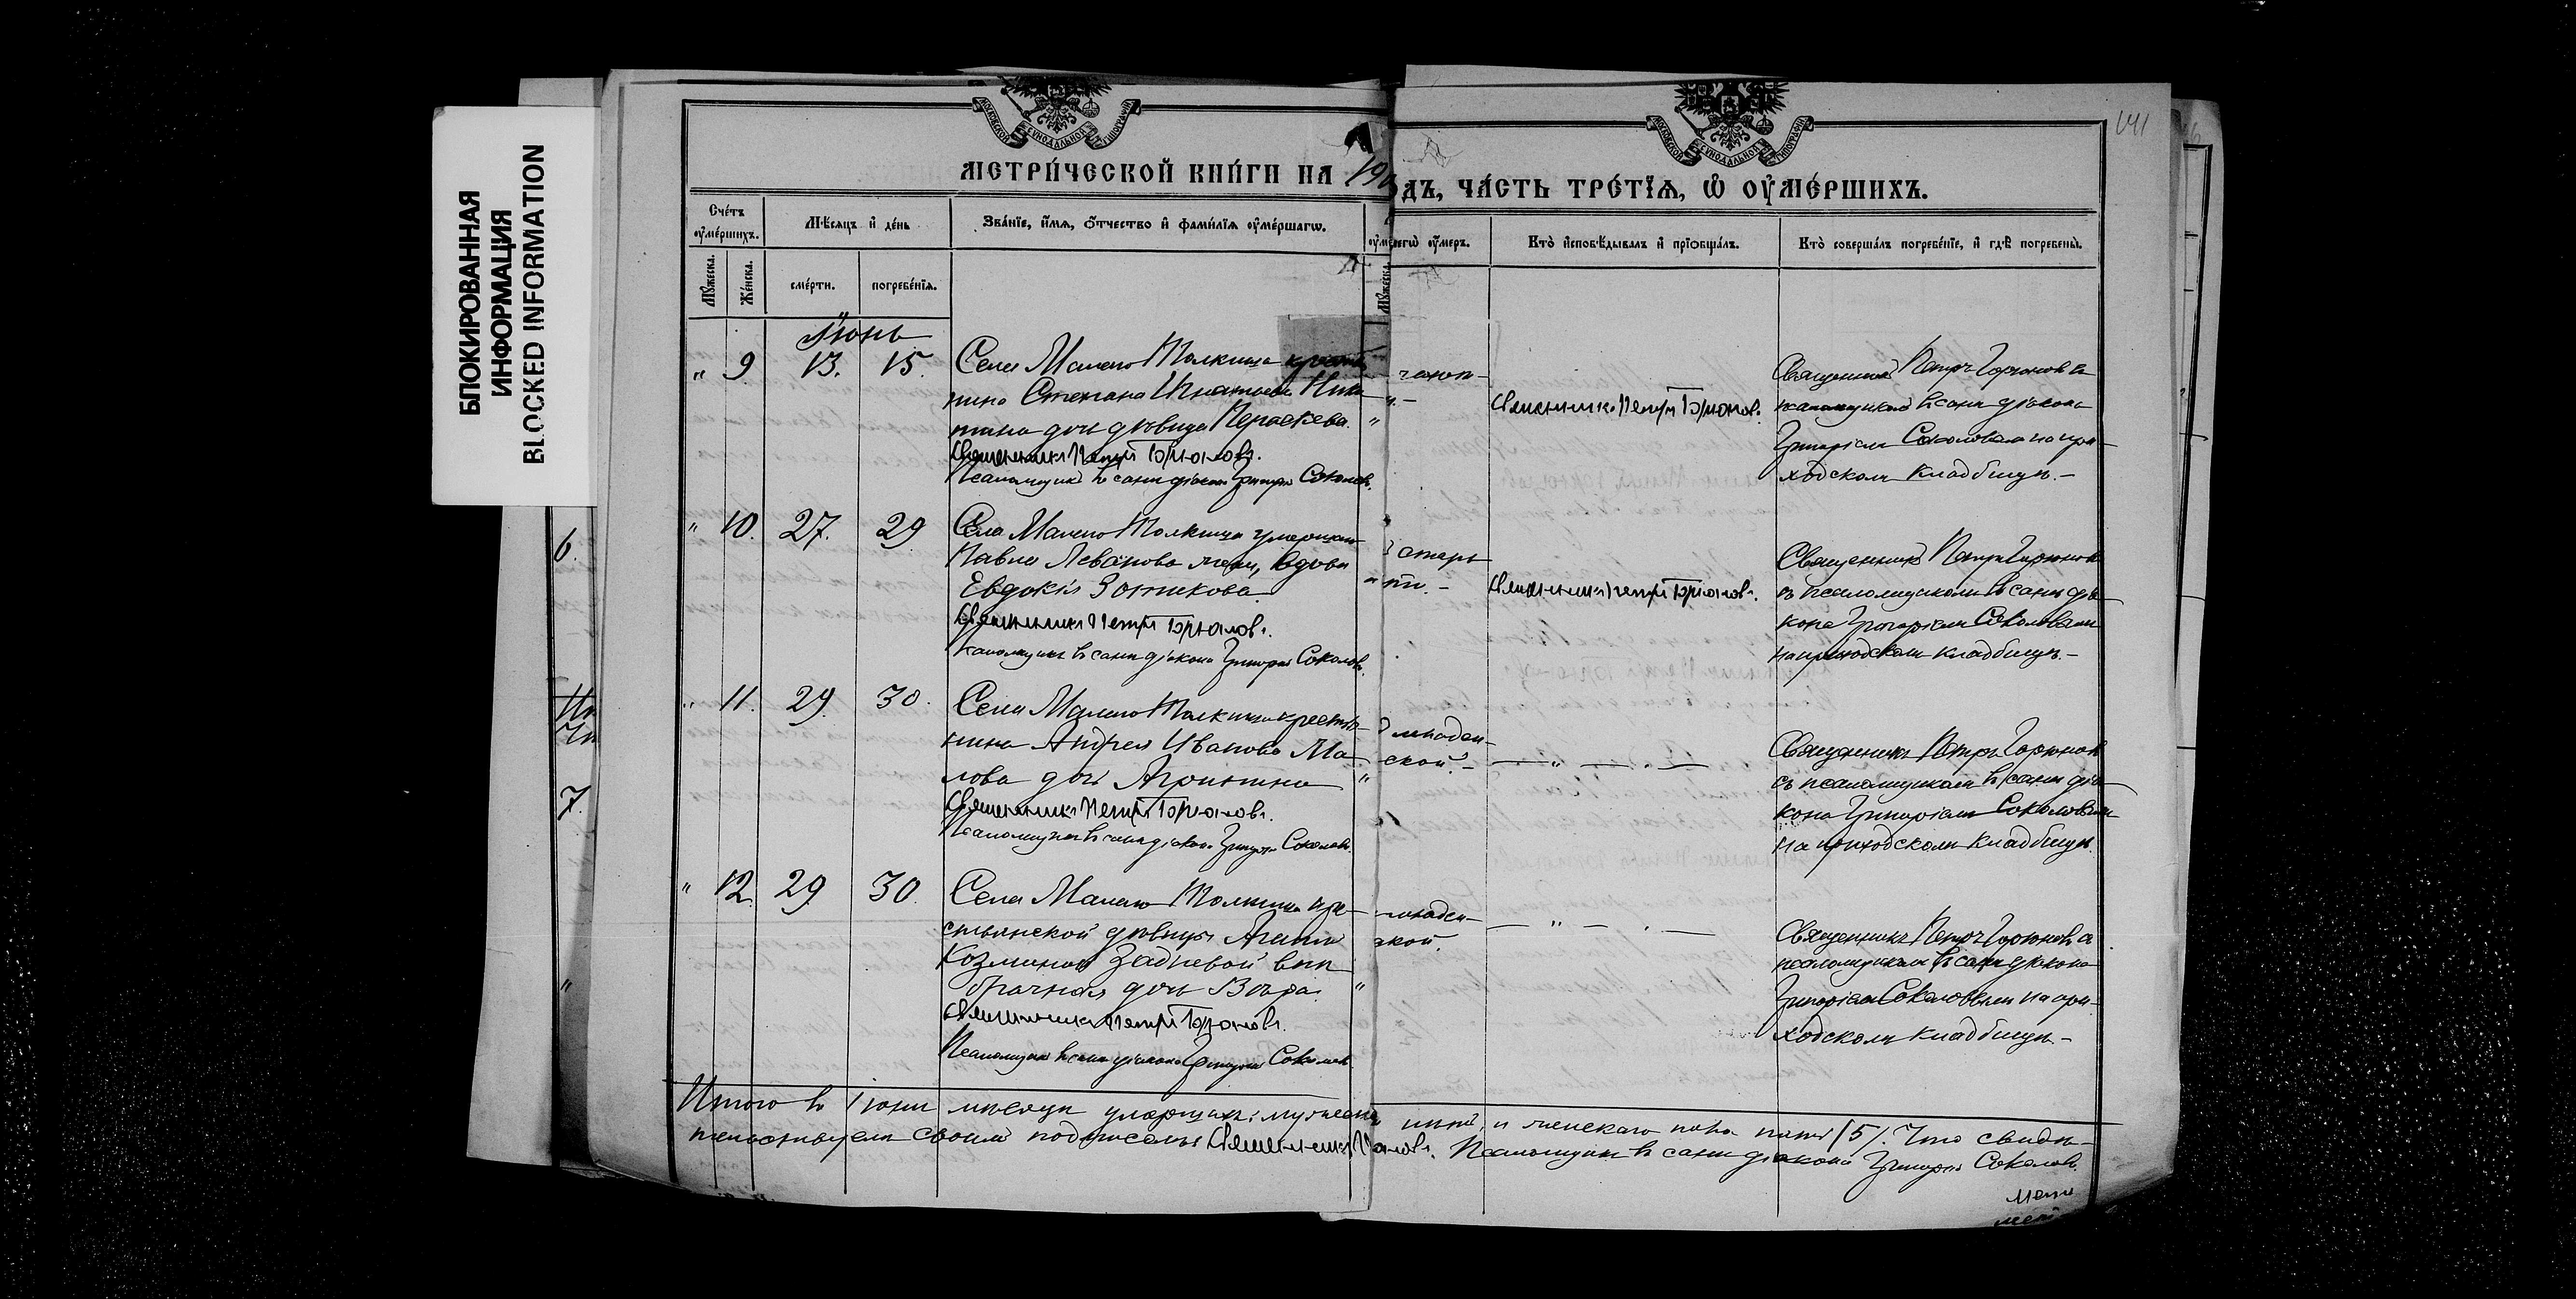 БЛОКИРОВАННАЯ
ИНФОРМАЦИЯ
BLOCKED INFORMATION
141
МОСКОВСКОЙ СѴНОДАЛЬНОЙ ТИПОГРАФІИ
МОСКОВСКОЙ СѴНОДАЛЬНОЙ ТИПОГРАФІИ
МЕТРИ́ЧЕСКОЙ КНИ́ГИ НА 190
ДЪ, ЧА́СТЬ ТРЕ́ТЇѦ, Ѡ҆ ОУ҆МЕ́РШИХЪ.
Сче́тъ оу҆ме́ршихъ.
Мѣ́сяцъ и҆ де́нь
Зва́нїе, и҆́мѧ, ѻ҆́тчество и҆ фами́лїѧ оу҆ме́ршагѡ.
чегѡ̀ оу҆́меръ.
Кто̀ и҆сповѣ́дывалъ и҆ прїѡбща́лъ.
Кто̀ соверша́лъ погребе́нїе, и҆ гдѣ̀ погребены̀.
Мꙋ́жеска.
Же́нска.
сме́рти.
погребе́нїѧ.
Мꙋ́жеска.
Іюнь
" 9 13. 15.
Села Малаго Толкиша крестья
нина Степана Игнатьева Ники
тина дочь дѣвица Параскева. "
Священникъ Петръ Горюновъ.
Псаломщикъ въ санѣ діакона Григорій Соколовъ.
чахот-
Священникъ Петръ Горюновъ.
Священникъ Петръ Горюновъ съ
псаломщикомъ въ санѣ діакона
Григоріемъ Соколовымъ на при-
ходскомъ кладбищѣ.-
" 10. 27. 29
Села Малаго Толкиша умершаго
Павла Леванова жена, вдова
Евдокія Зотикова.
Священникъ Петръ Горюновъ.
Псаломщикъ въ санѣ діакона Григорій Соколовъ.
старо
сти.-
Священникъ Петръ Горюновъ.
Священникъ Петръ Горюновъ
съ псаломщикомъ въ санѣ діа-
кона Григоріемъ Соколовымъ
на приходскомъ кладбищѣ.-
" 11. 29. 30.
Села Малаго Толкиша крестья-
нина Андрея Иванова Ма-
лова дочь Агрипина "
Священникъ Петръ Горюновъ.
Псаломщикъ въ санѣ діакона Григорій Соколовъ.
младен-
ской.-
Священникъ Петръ Горюновъ
съ псаломщикомъ въ санѣ діа-
кона Григоріемъ Соколовымъ
на приходскомъ кладбищѣ.
" 12. 29. 30.
Села Малаго Толкиша кре-
стьянской дѣвицы Агапіи
Козминой Задневой внѣ
брачная дочь Вѣра. "
Священникъ Петръ Горюновъ.
Псаломщикъ въ санѣ діакона Григорій Соколовъ.
младен-
ской.
Священникъ Петръ Горюновъ съ
псаломщикомъ въ санѣ діакона
Григоріемъ Соколовымъ на при-
ходскомъ кладбищѣ.-
Итого въ Іюнѣ мѣсяцѣ умершихъ: мужеска и женскаго пола пять /5/. Что свидѣ-
тельствуемъ своимъ подписомъ: Священникъ Псаломщикъ въ санѣ діакона Григорій Соколовъ.
6.
7.